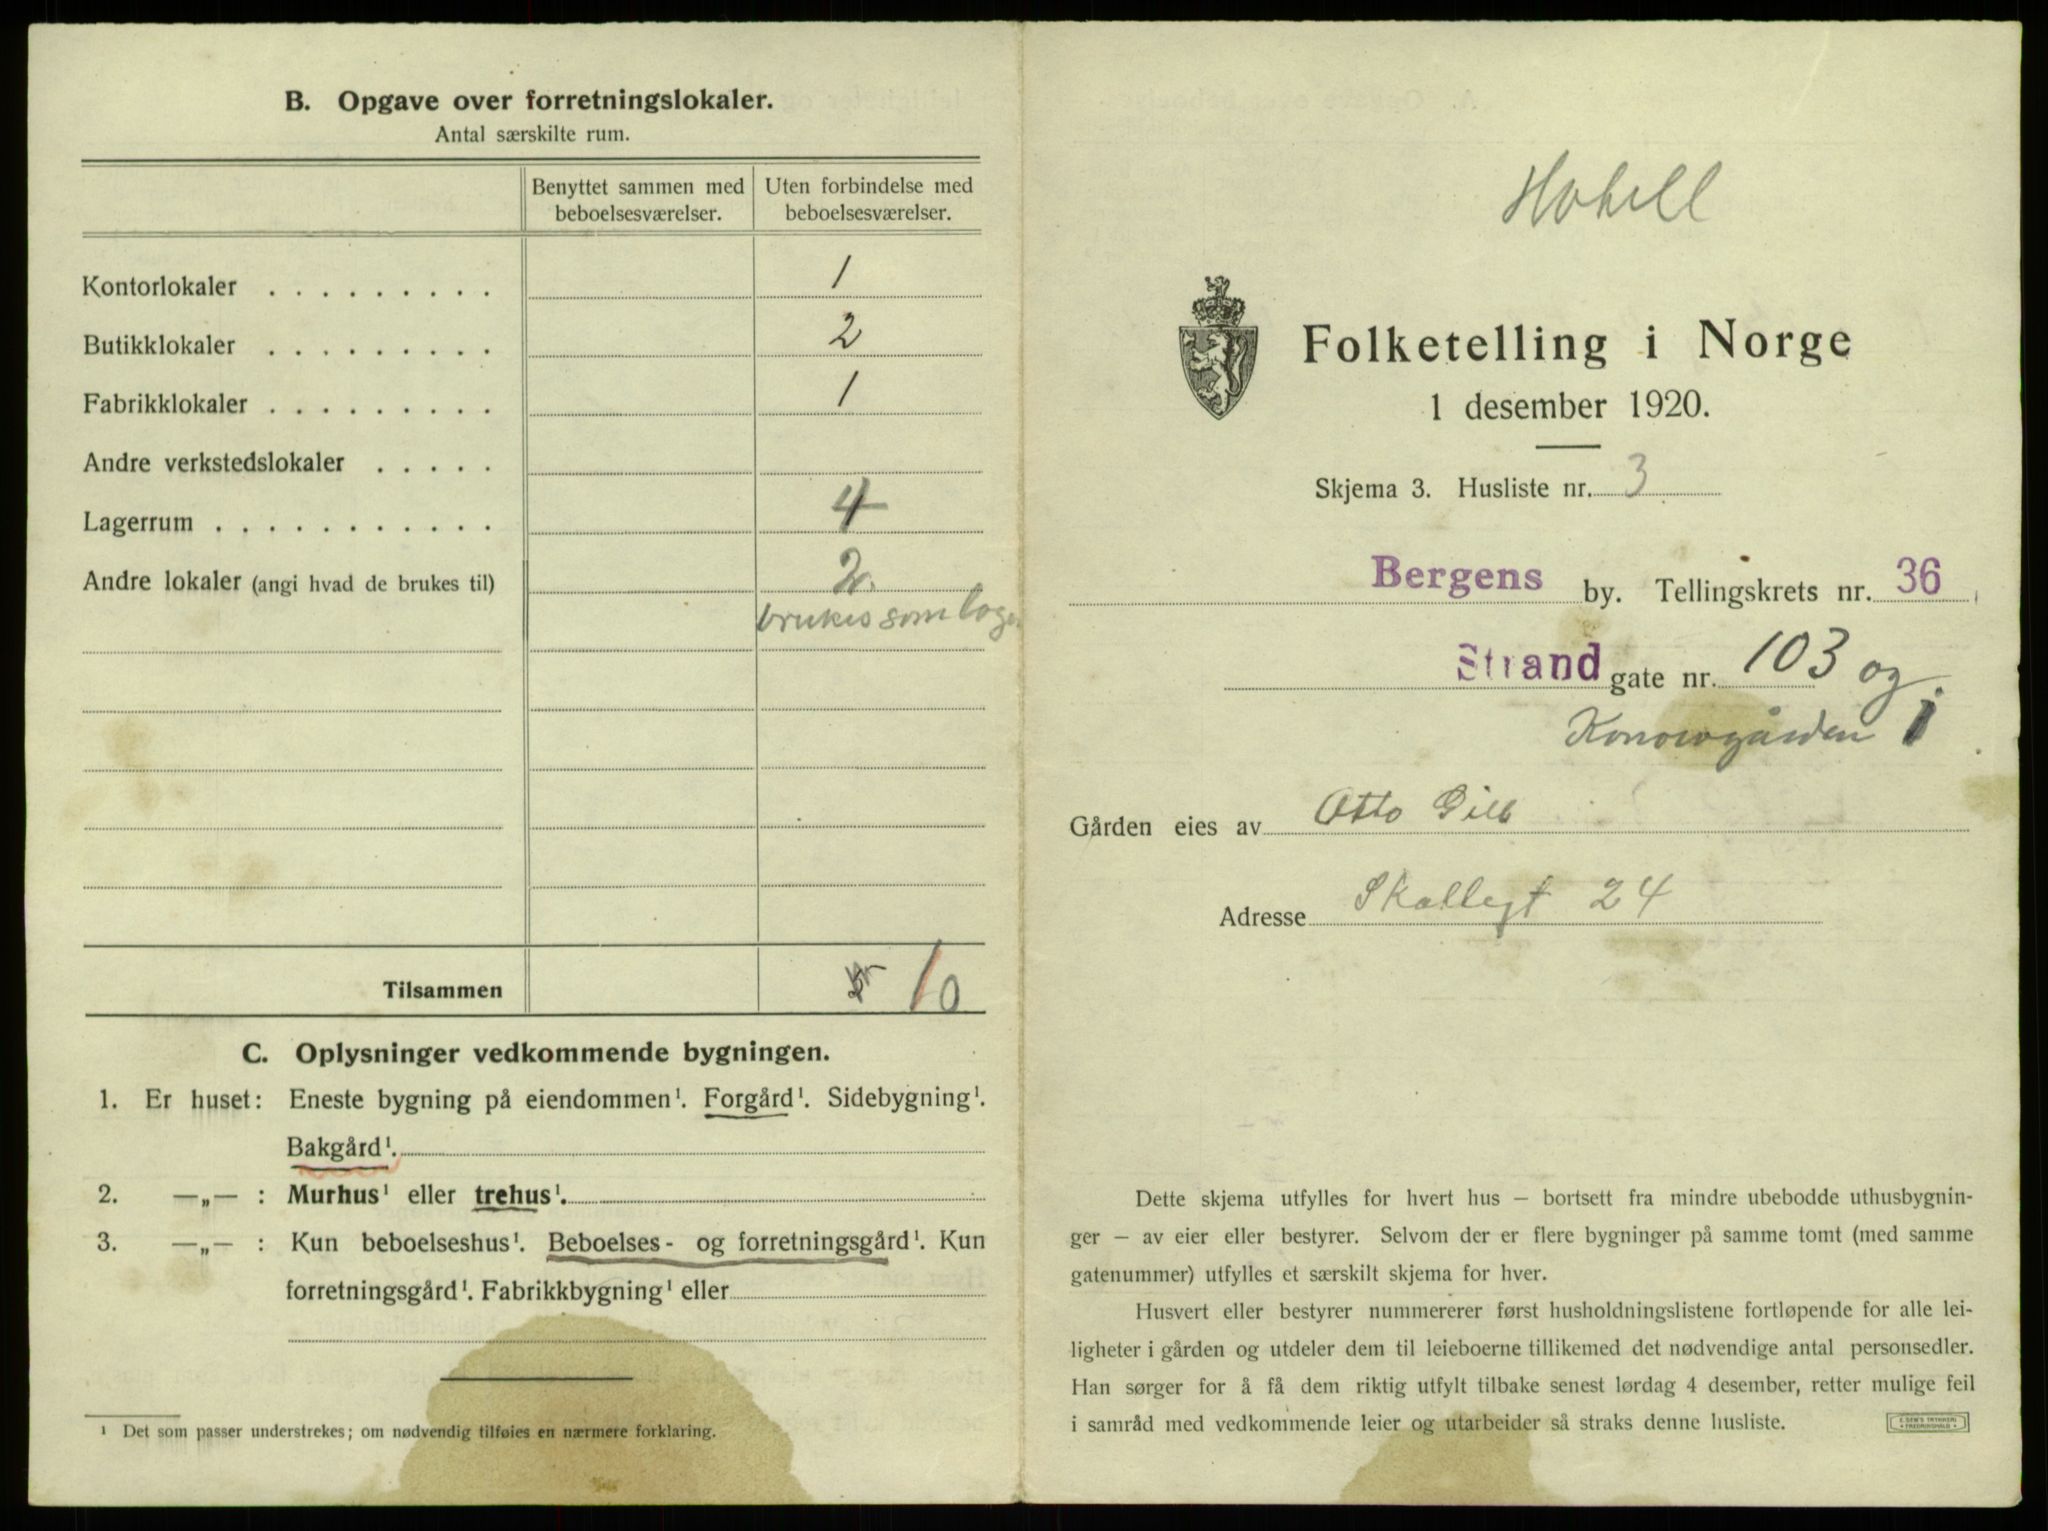 B. Opgave over forretningslokaler.
Antal særskilte rum.
Benyttet sammen med beboelsesværelser.
Uten forbindelse med beboelsesværelser.
Kontorlokaler . . . . . . . . . 1
Butikklokaler . . . . . . . . . 2
Fabrikklokaler . . . . . . . . . 1
Andre verkstedslokaler . . . . .
Lagerrum . . . . . . . . . . . 4
Andre lokaler (angi hvad de brukes til) 2.
brukes som lager
Tilsammen 10
C. Oplysninger vedkommende bygningen.
1. Er huset: Eneste bygning på eiendommen¹. Forgård¹. Sidebygning¹.
Bakgård¹.
2. —„— : Murhus¹ eller trehus¹.
3. —„— : Kun beboelseshus¹. Beboelses- og forretningsgård¹. Kun
forretningsgård¹. Fabrikkbygning¹ eller
¹ Det som passer understrekes; om nødvendig tilføies en nærmere forklaring.
Hotell
Folketelling i Norge
1 desember 1920.
Skjema 3. Husliste nr. 3
Bergens by. Tellingskrets nr. 36
Strand gate nr. 103 og
Konowgården 1
Gården eies av Otto Gill
Adresse Skottegt 24
Dette skjema utfylles for hvert hus — bortsett fra mindre ubebodde uthusbygnin-
ger — av eier eller bestyrer. Selvom der er flere bygninger på samme tomt (med samme
gatenummer) utfylles et særskilt skjema for hver.
Husvert eller bestyrer nummererer først husholdningslistene fortløpende for alle lei-
ligheter i gården og utdeler dem til leieboerne tillikemed det nødvendige antal personsedler.
Han sørger for å få dem riktig utfylt tilbake senest lørdag 4 desember, retter mulige feil
i samråd med vedkommende leier og utarbeider så straks denne husliste.